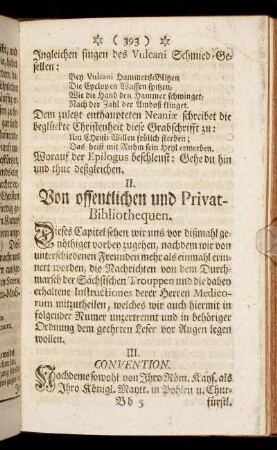 ( 393 )
Ingleichen singen des Vulcani Schmied-Ge-
sellen:
Bey Vulcani Hammers-Blitzen
Die Cyclopen Waffen spitzen,
Wie die Hand den Hammer schwinget,
Nach der Zahl der Ambos klinget.
Dem zuletzt enthaupteten Neaniæ schreibet die
beglückte Christenheit diese Grabschrifft zu:
Um Christi Willen frölich sterben;
Das heist mit Ruhm sein Heyl erwerben.
Worauf der Epilogus beschleust: Gehe du hin
und thue desgleichen.
II.
Von offentlichen und Privat-
Bibliothequen.
Dieses Capitel sehen wir uns vor dißmahl ge-
nöthiget vorbey zugehen, nachdem wir von
unterschiedenen Freunden mehr als einmahl erin-
nert worden, die Nachrichten von dem Durch-
marsch der Sächsischen Trouppen und die dabey
erhaltene Instructiones derer Herren Medico-
rum mitzutheilen, welches wir auch hiermit in
folgender Numer unzertrennt und in behöriger
Ordnung dem geehrten Leser vor Augen legen
wollen.
III.
CONVENTION.
Nachdeme sowohl von Ihro Röm. Kays. als
Ihro Königl. Maytt. in Pohlen u. Chur-
Bb 5
fürstl.